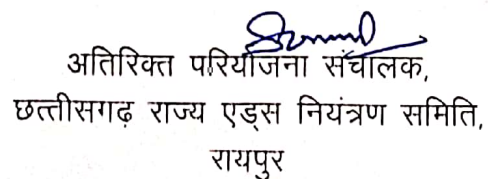 अतिरिक्त परियोजना संचालक,
छत्तीसगढ़ राज्य एड्स नियंत्रण समिति,
रायपुर